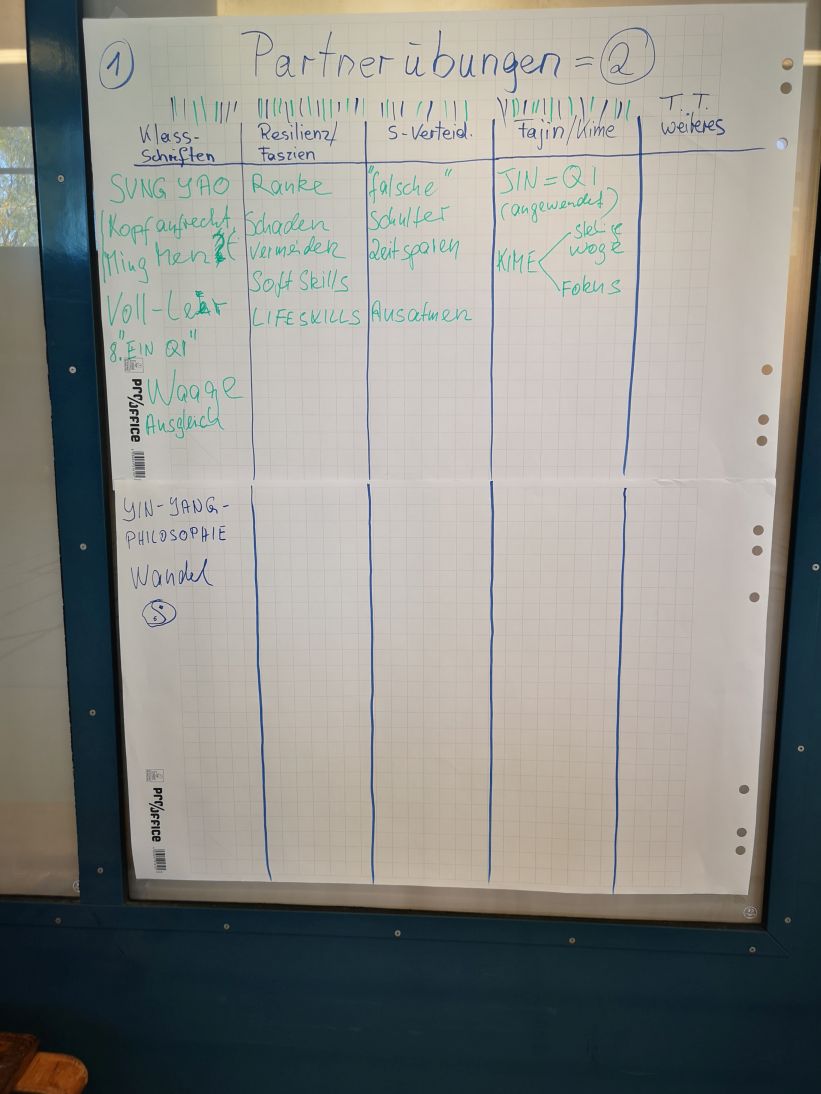 1
Partnerübungen = 2
Klass-
Schriften
Resilienz/
Faszien
S-Verteid.
Fajin/Kime
T.T.
weiteres
SUNG YAO
(Kopf aufrecht,
Ming Men
Voll-Leer
8. "EIN QI"
Waage
Ausgleich
YIN-YANG-
PHILOSOPHIE
Wandel
Ranke
Schaden
vermeiden
Soft Skills
LIFESKILLS
"falsche"
Schulter
Zeit sparen
Ausatmen
JIN = QI
(angewendet)
KIME
woge
Fokus
Pro/office
Pro/office